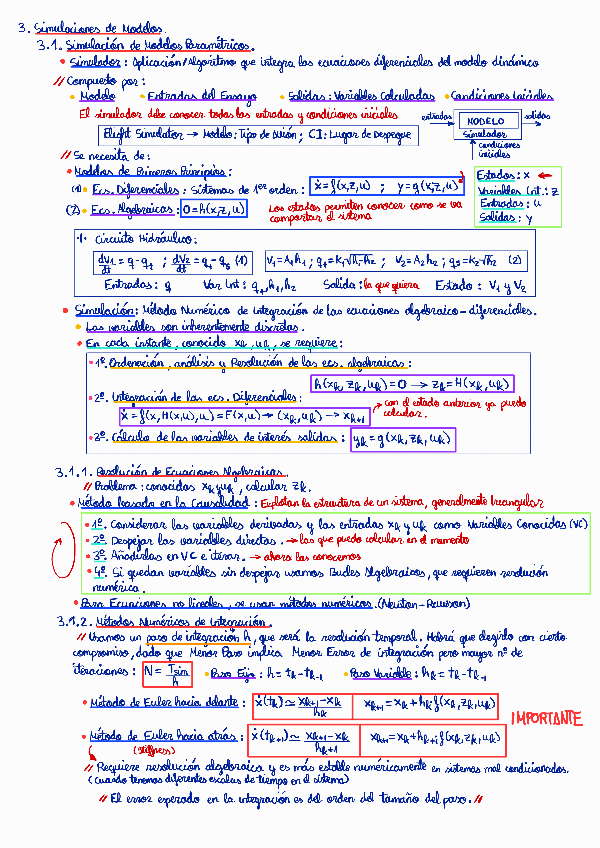 3. Simulaciones de Modelos.
3.1. Simulación de Modelos Paramétricos.
• Simulador: Aplicación/Algoritmo que integra las ecuaciones diferenciales del modelo dinámico
// Compuesto por:
• Modelo • Entradas del Ensayo • Salidas: Variables Calculadas • Condiciones Iniciales
El simulador debe conocer todas las entradas y condiciones iniciales
entradas MODELO salidas
Simulador
condiciones
iniciales
Flight Simulator → Modelo: Tipo de Avión; CI: Lugar de Despegue
// Se necesita de:
• Modelos de Primeros Principios:
(1) • Ecs. Diferenciales: Sistemas de 1er orden: ẋ = f(x,z,u) ; y = g(x,z,u)
(2) • Ecs. Algebraicas: 0 = h(x,z,u)
Los estados permiten conocer como se va
comportar el sistema
Estados: x ←
Variables Int.: z
Entradas: u
Salidas: y
Circuito Hidráulico:
dV1/dt = q - q1 ; dV2/dt = q1 - q3 (1) V1 = A1h1 ; q1 = K√h1-h2 ; V2 = A2h2 ; q3 = K2√h2 (2)
Entradas: q Var Int: q1, h1, h2 Salida: la que quiera Estado: V1 y V2
• Simulación: Método Numérico de integración de las ecuaciones algebraico-diferenciales.
• Las variables son inherentemente discretas.
• En cada instante, conocido xk, uk, se requiere:
• 1º. Ordenación, análisis y Resolución de las ecs. algebraicas:
h(xk, zk, uk) = 0 → zk = H(xk, uk)
• 2º. Integración de las ecs. Diferenciales:
ẋ = f(x, H(x,u), u) = F(x,u) → (xk, uk) → xk+1
con el estado anterior ya puedo
calcular.
• 3º. Cálculo de las variables de interés salidas: yk = g(xk, zk, uk)
3.1.1. Resolución de Ecuaciones Algebraicas.
// Problema: conocidas xk y uk, calcular zk.
• Método basado en la Causalidad: Explotan la estructura de un sistema, generalmente triangular
• 1º. Considerar las variables derivadas y las entradas xk y uk como Variables Conocidas (VC)
• 2º. Despejar las variables directas. → las que puedo calcular en el momento
• 3º. Añadirlas en VC e iterar. → ahora las conocemos
• 4º. Si quedan variables sin despejar usamos Bucles Algebraicos, que requieren resolución
numérica.
• Para Ecuaciones no lineales, se usan métodos numéricos. (Newton-Rawson)
3.1.2. Métodos Numéricos de Integración.
// Usamos un paso de integración h, que será la resolución temporal. Habrá que elegirlo con cierto
compromiso, dado que Menor Paso implica Menor Error de integración pero mayor nº de
iteraciones: N = Tsim/h • Paso Fijo: h = tk - tk-1 • Paso Variable: hk = tk - tk-1
• Método de Euler hacia delante: ẋ(tk) ≃ xk+1-xk/hk xk+1 = xk + hk f(xk, zk, uk)
IMPORTANTE
• Método de Euler hacia atrás: ẋ(tk+1) ≃ xk+1-xk/hk+1 xk+1 = xk + hk+1 f(xk, zk, uk)
(stiffness)
// Requiere resolución algebraica y es más estable numéricamente en sistemas mal condicionados.
(Cuando tenemos diferentes escalas de tiempo en el sistema)
// El error esperado en la integración es del orden del tamaño del paso. //